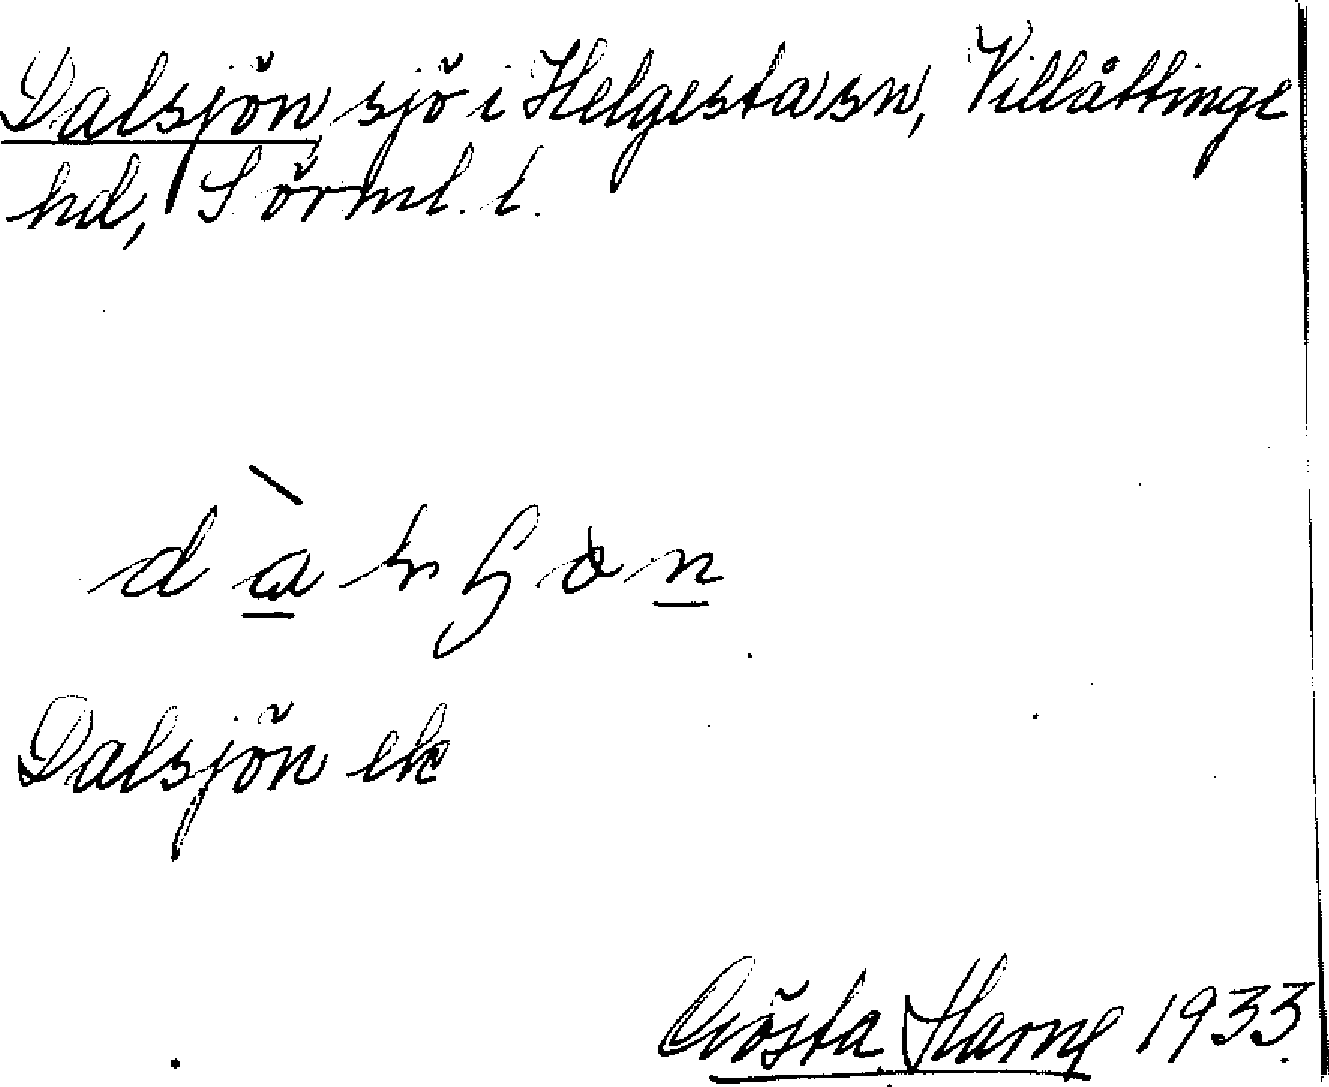 Dalsjön, sjö i Helgesta sn, Villåttinge
hd, Sörml. l.
Dalsjön ek
Gösta Harne 1933.